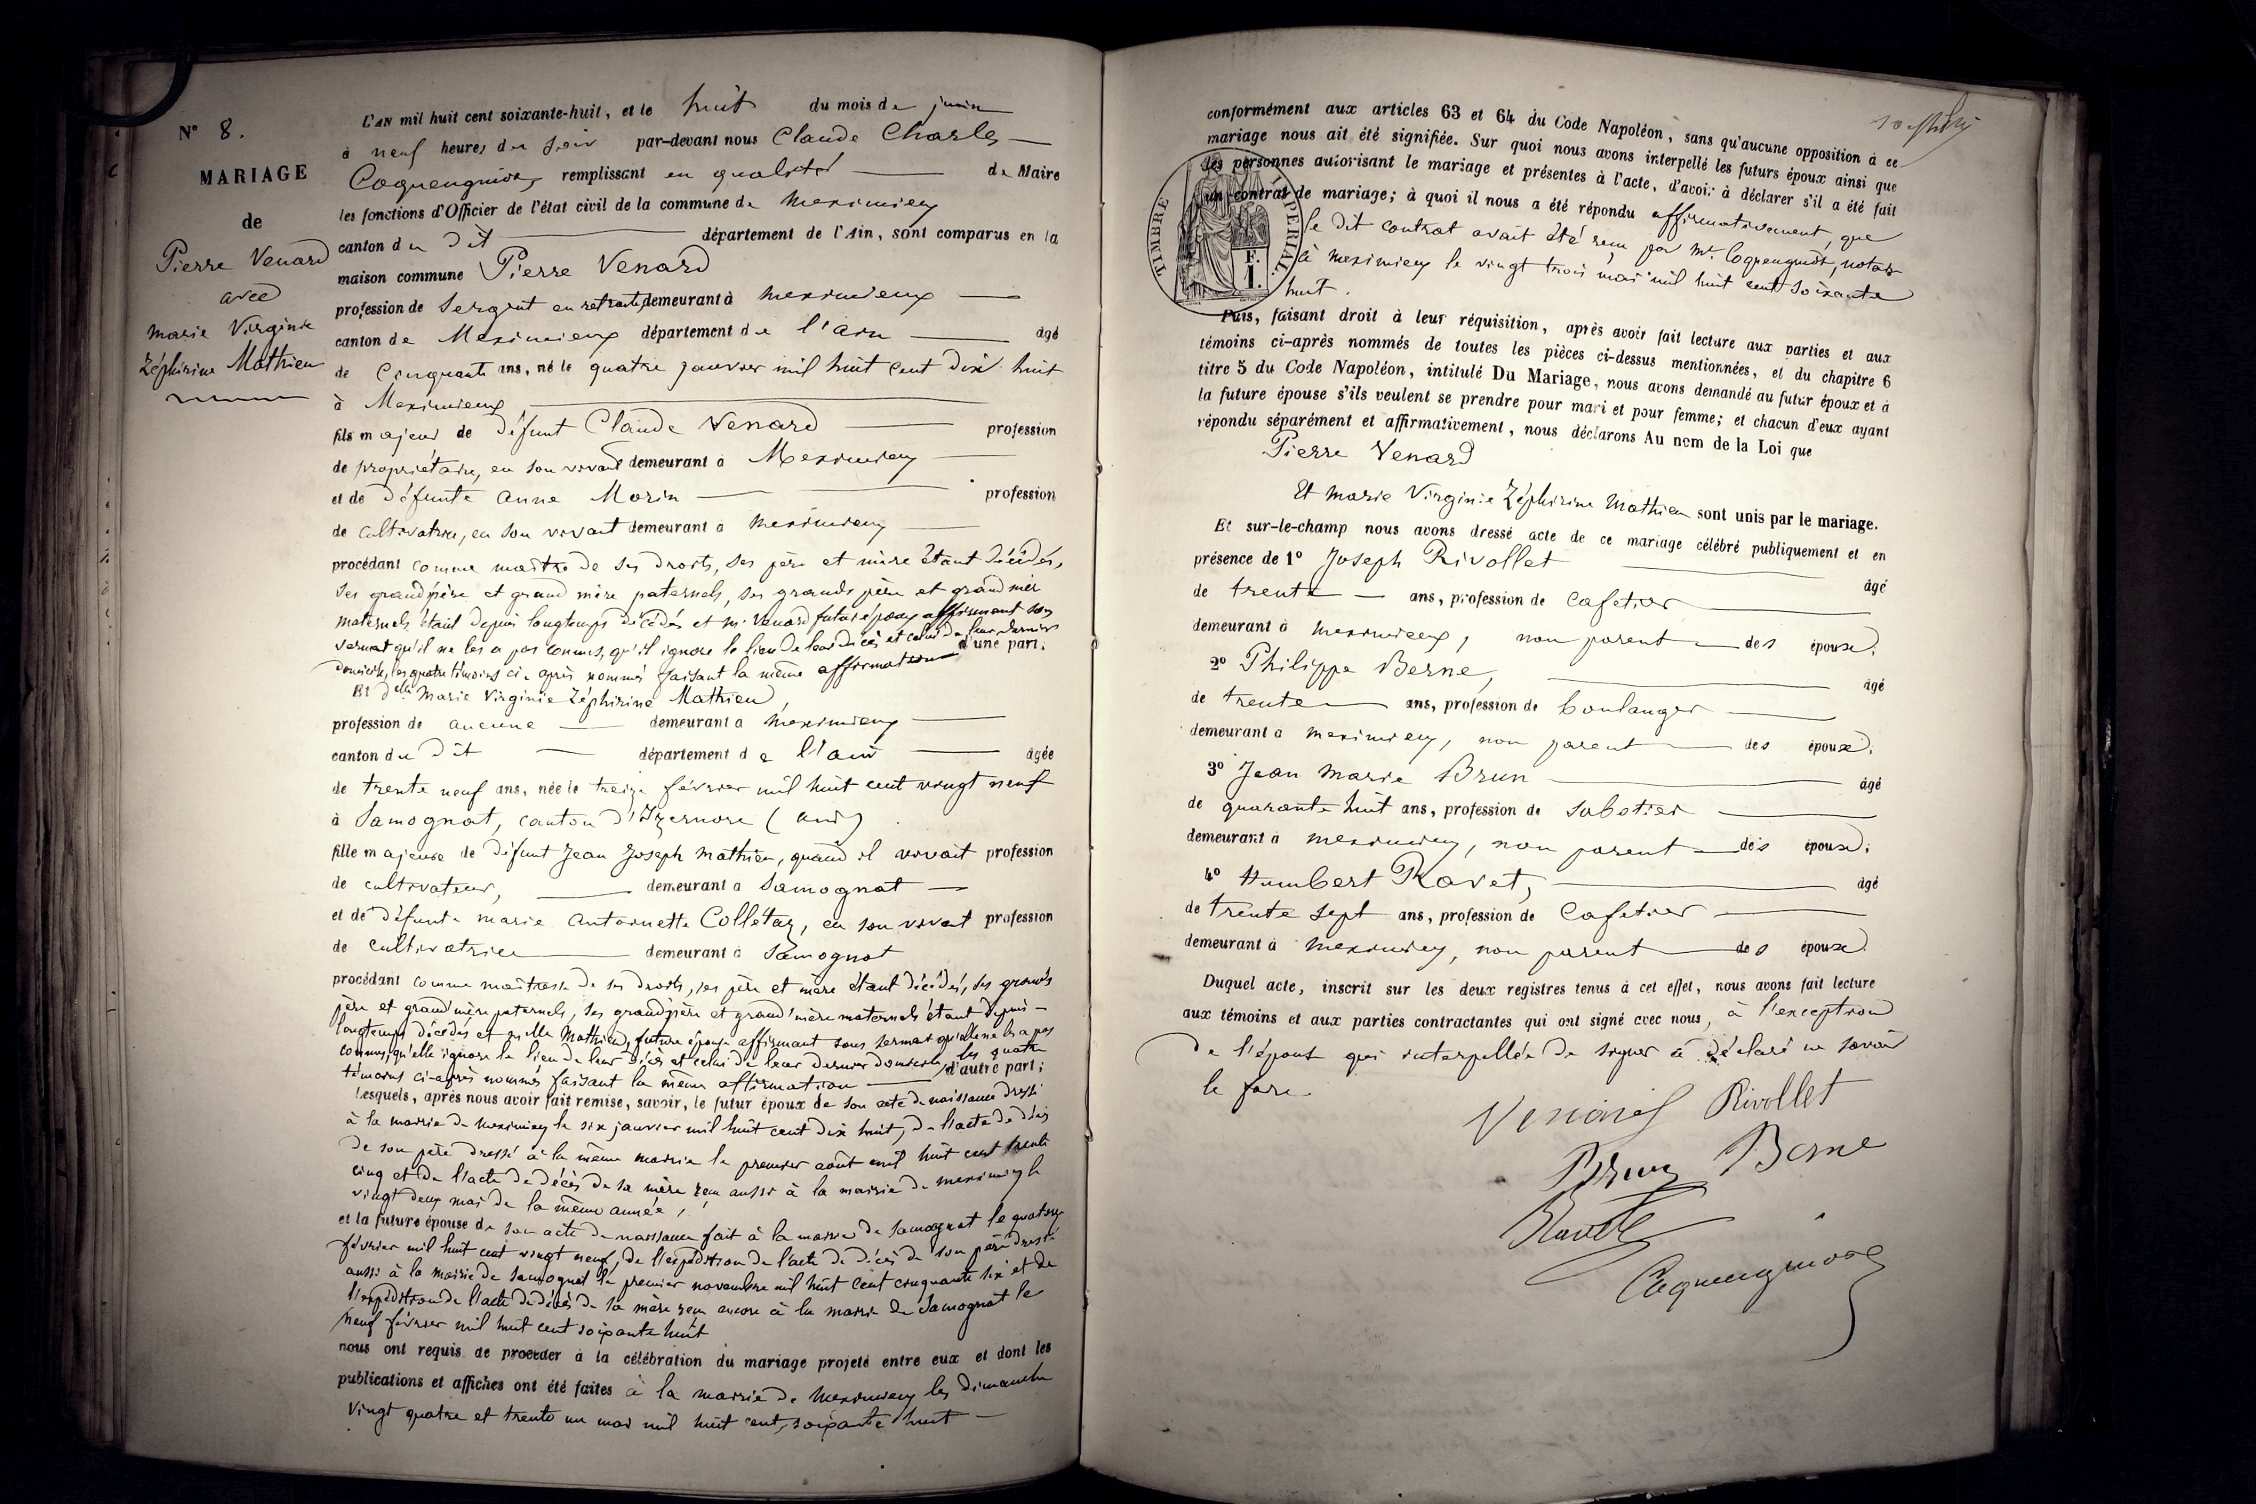 N° 8.
MARIAGE
de
Pierre Venard
avec
marie Virginie
Zéphirine Mathieu
L'AN mil huit cent soixante-huit, et le huit du mois de juin
à neuf heures du soir par-devant nous Claude Charles
Coquengniot, remplissant en qualité de Maire
les fonctions d'Officier de l'état civil de la commune de Meximieux
canton du dit département de l'Ain, sont comparus en la
maison commune Pierre Venard
profession de Sergent en retraite, demeurant à Meximieux
canton de Meximieux département de l'ain âgé
de Cinquante ans, né le quatre janvier mil huit cent dix huit
à Meximieux
fils majeur de défunt Claude Venard profession
de propriétaire, en son vivant demeurant à Meximieux
et de défunte anne Morin profession
de cultivatrice, en son vivant demeurant à Meximieux
procédant comme maître de ses droits, ses père et mère étant décédés,
ses grand père et grand mère paternels, ses grands père et grand mère
maternels étant depuis longtemps décédés et mr Venard futur époux affirmant sous
serment qu'il ne les a pas connus, qu'il ignore le lieu de leur décès et celui de leur dernier
d'une part.
domicile, les quatre témoins ci-après nommés faisant la même affirmation
Et delle Marie Virginie Zéphirine Mathieu
profession de aucune demeurant à Meximieux
canton du dit département de l'ain âgée
de trente neuf ans, née le treize février mil huit cent vingt neuf
à Samognat, canton d'Izernore (ain)
fille majeure de défunt Jean Joseph Mathieu, quand il vivait profession
de cultivateur, demeurant à Samognat
et de défunte marie antoinette Collétaz, en son vivant profession
de cultivatrice demeurant à Samognat
procédant comme maîtresse de ses droits, ses père et mère étant décédés, ses grands
père et grand'mère paternels, ses grand père et grand'mère maternels étant depuis
longtemps décédés et melle Mathieu, future épouse affirmant sous serment qu'elle ne les a pas
connus, qu'elle ignore le lieu de leur décès et celui de leur dernier domicile, les quatre
témoins ci-après nommés faisant la même affirmation d'autre part;
Lesquels, après nous avoir fait remise, savoir, le futur époux de son acte de naissance dressé
à la mairie de Meximieux le six janvier mil huit cent dix huit, de l'acte de décès
de son père dressé à la même mairie le premier août mil huit cent trente
cinq et de l'acte de décès de sa mère reçu aussi à la mairie de Meximieux le
vingt deux mai de la même année,
et la future épouse de son acte de naissance fait à la mairie de Samognat le quatorze
février mil huit cent vingt neuf, de l'expédition de l'acte de décès de son père dressé
aussi à la mairie de Samognat le premier novembre mil huit cent cinquante six et de
l'expédition de l'acte de décès de sa mère reçu encore à la mairie de Samognat le
neuf février mil huit cent soixante huit
nous ont requis de procéder à la célébration du mariage projeté entre eux et dont les
publications et affiches ont été faites à la mairie de Meximieux les dimanche
vingt quatre et trente un mai mil huit cent soixante huit
conformément aux articles 63 et 64 du Code Napoléon, sans qu'aucune opposition à ce
mariage nous ait été signifiée. Sur quoi nous avons interpellé les futurs époux ainsi que
les personnes autorisant le mariage et présentes à l'acte, d'avoir à déclarer s'il a été fait
un contrat de mariage; à quoi il nous a été répondu affirmativement, que
le dit contrat avait été reçu par Mr. Coquengniot, notaire
à Meximieux le vingt trois mai mil huit cent soixante
huit.
TIMBRE IMPERIAL
F.
1.
Puis, faisant droit à leur réquisition, après avoir fait lecture aux parties et aux
témoins ci-après nommés de toutes les pièces ci-dessus mentionnées, et du chapitre 6
titre 5 du Code Napoléon, intitulé Du Mariage, nous avons demandé au futur époux et à
la future épouse s'ils veulent se prendre pour mari et pour femme; et chacun d'eux ayant
répondu séparément et affirmativement, nous déclarons Au nom de la Loi que
Pierre Venard
Et Marie Virginie Zéphirine Mathieu sont unis par le mariage.
Et sur-le-champ nous avons dressé acte de ce mariage célébré publiquement et en
présence de 1° Joseph Rivollet
âgé
de trente ans, profession de Cafetier
demeurant à Meximieux, non parent des époux.
2° Philippe Berne,
âgé
de trente ans, profession de boulanger
demeurant à Meximieux, non parent des époux.
3° Jean Marie Brun
âgé
de quarante huit ans, profession de Sabotier
demeurant à Meximieux, non parent des époux.
4° Humbert Ravet,
âgé
de trente sept ans, profession de Cafetier
demeurant à Meximieux, non parent des époux.
Duquel acte, inscrit sur les deux registres tenus à cet effet, nous avons fait lecture
aux témoins et aux parties contractantes qui ont signé avec nous, à l'exception
de l'épouse qui interpellée de signer a déclaré ne savoir
le faire.
Venard Rivollet
Brun Berne
Ravet
Coquengniot